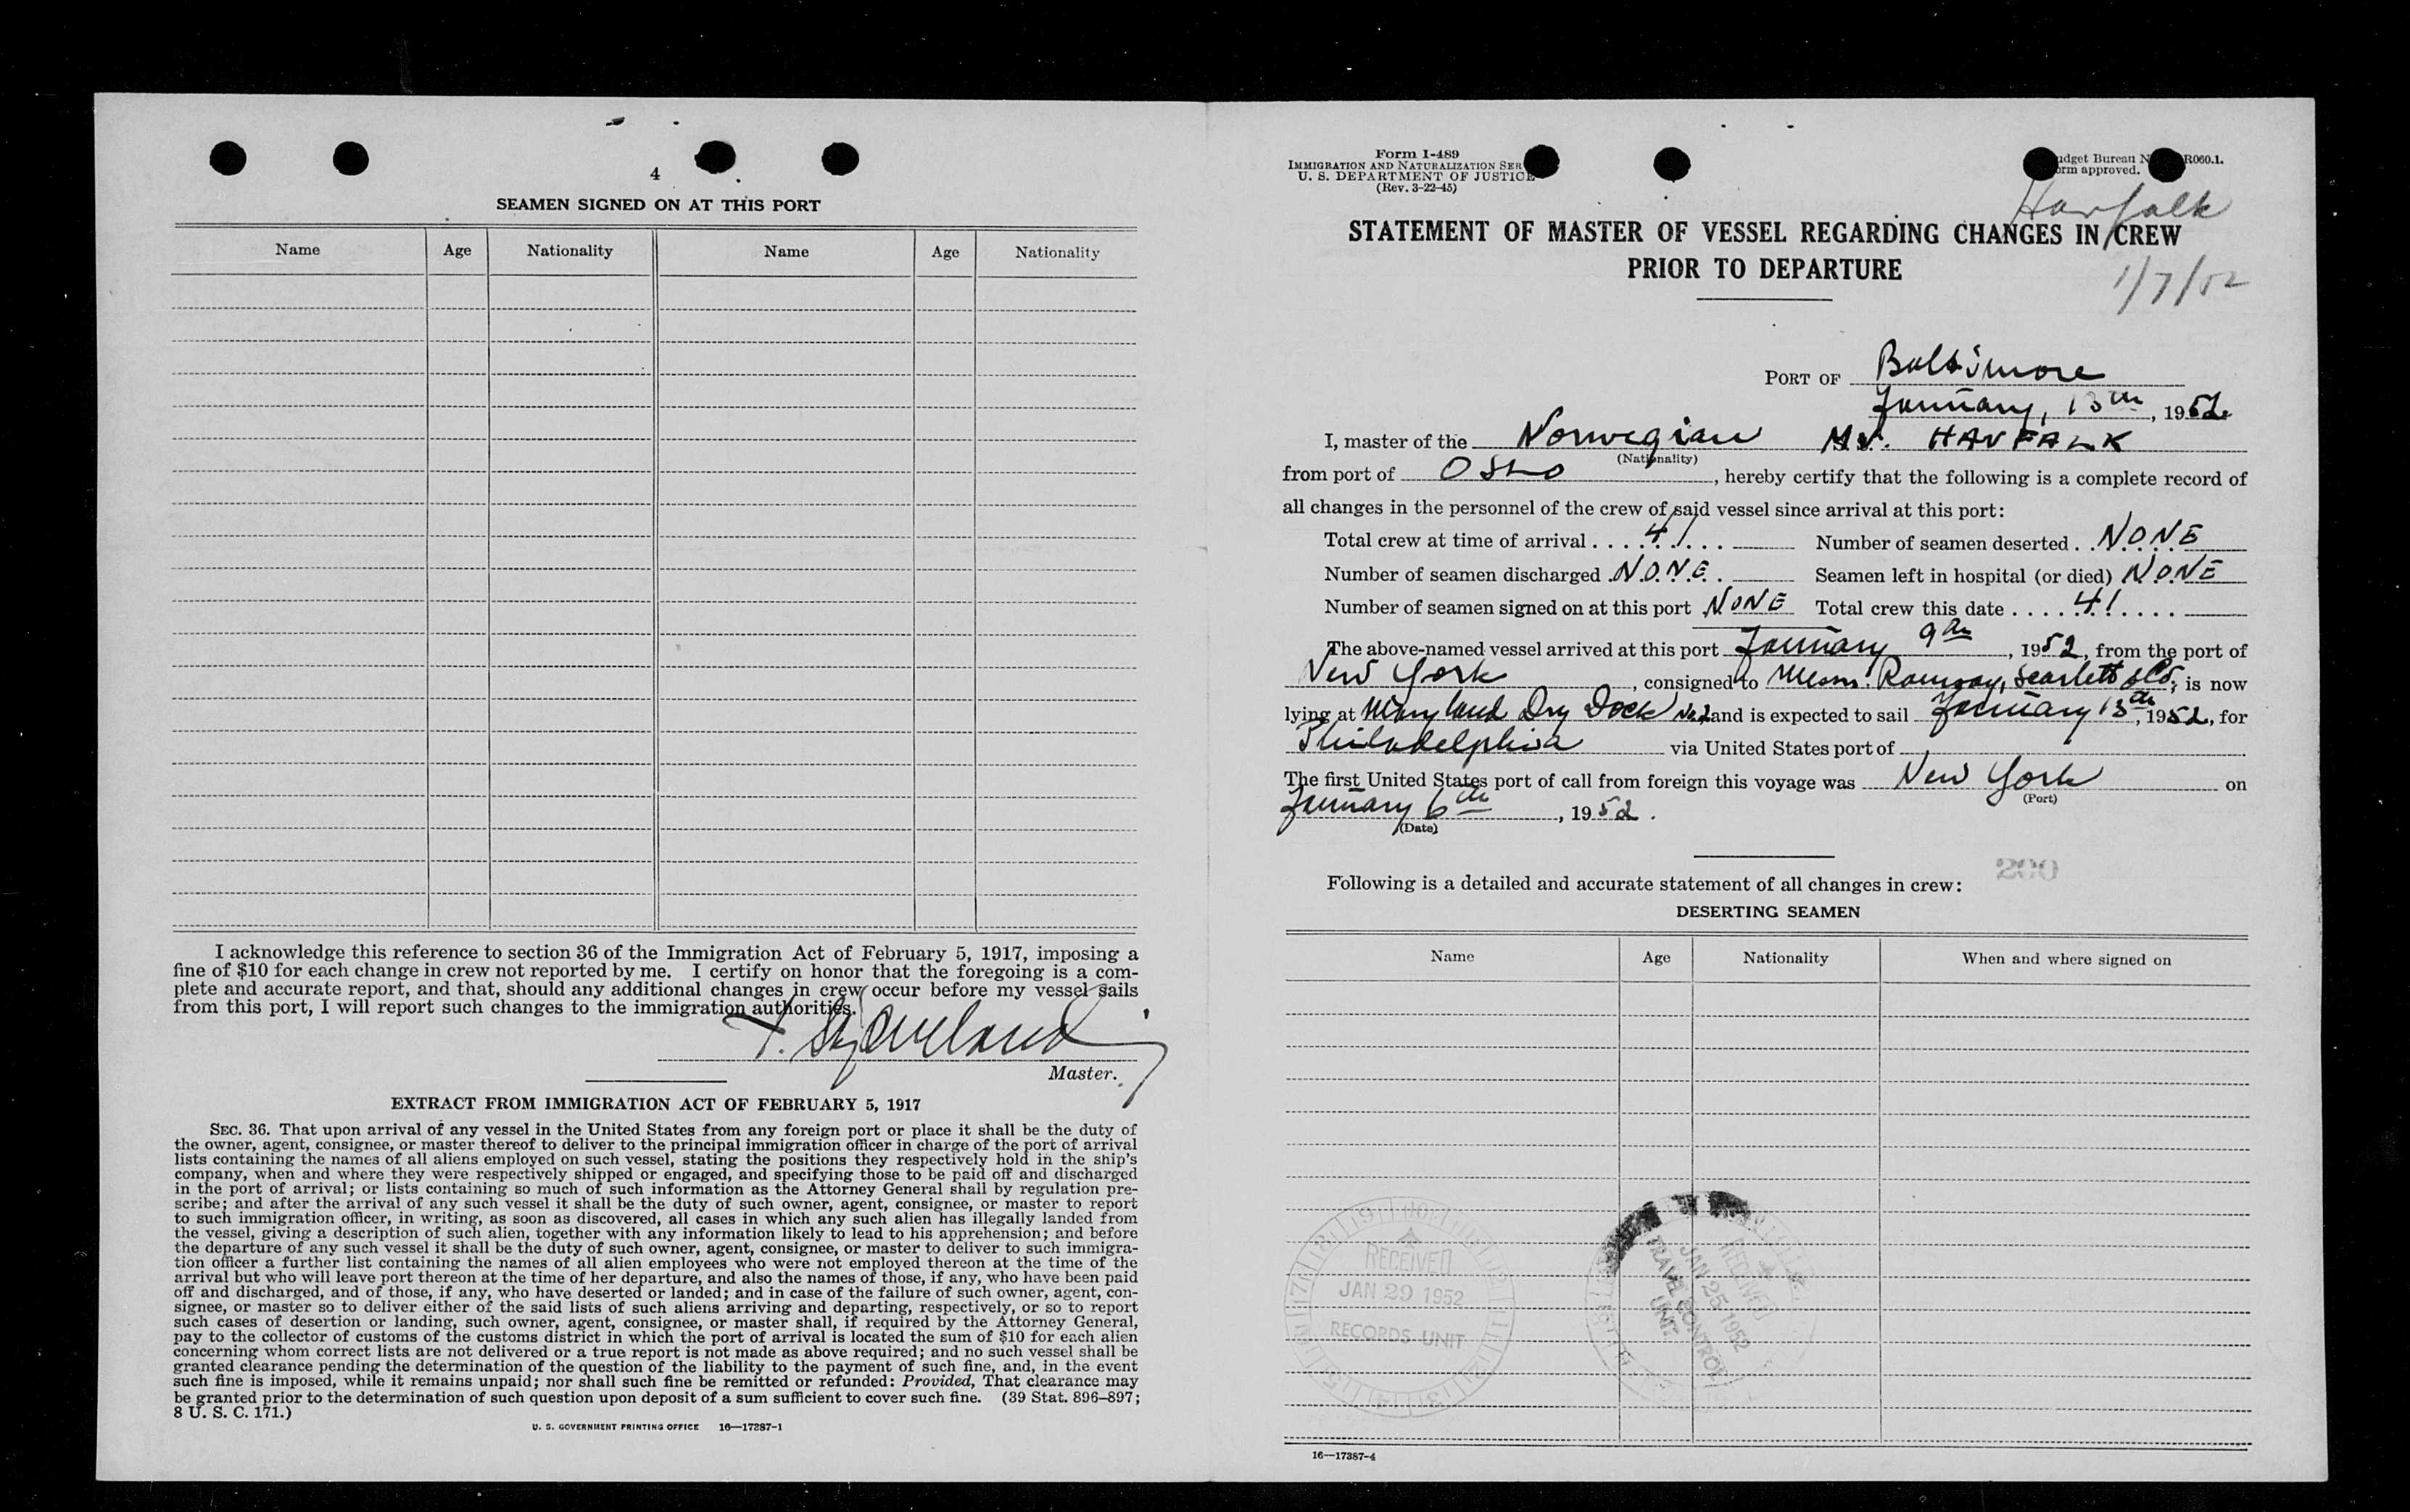 4
SEAMEN SIGNED ON AT THIS PORT
Name Age Nationality Name Age Nationality
I acknowledge this reference to section 36 of the Immigration Act of February 5, 1917, imposing a
fine of $10 for each change in crew not reported by me. I certify on honor that the foregoing is a com-
plete and accurate report, and that, should any additional changes in crew occur before my vessel sails
from this port, I will report such changes to the immigration authorities.
Master.
EXTRACT FROM IMMIGRATION ACT OF FEBRUARY 5, 1917
SEC. 36. That upon arrival of any vessel in the United States from any foreign port or place it shall be the duty of
the owner, agent, consignee, or master thereof to deliver to the principal immigration officer in charge of the port of arrival
lists containing the names of all aliens employed on such vessel, stating the positions they respectively hold in the ship's
company, when and where they were respectively shipped or engaged, and specifying those to be paid off and discharged
in the port of arrival; or lists containing so much of such information as the Attorney General shall by regulation pre-
scribe; and after the arrival of any such vessel it shall be the duty of such owner, agent, consignee, or master to report
to such immigration officer, in writing, as soon as discovered, all cases in which any such alien has illegally landed from
the vessel, giving a description of such alien, together with any information likely to lead to his apprehension; and before
the departure of any such vessel it shall be the duty of such owner, agent, consignee, or master to deliver to such immigra-
tion officer a further list containing the names of all alien employees who were not employed thereon at the time of the
arrival but who will leave port thereon at the time of her departure, and also the names of those, if any, who have been paid
off and discharged, and of those, if any, who have deserted or landed; and in case of the failure of such owner, agent, con-
signee, or master so to deliver either of the said lists of such aliens arriving and departing, respectively, or so to report
such cases of desertion or landing, such owner, agent, consignee, or master shall, if required by the Attorney General,
pay to the collector of customs of the customs district in which the port of arrival is located the sum of $10 for each alien
concerning whom correct lists are not delivered or a true report is not made as above required; and no such vessel shall be
granted clearance pending the determination of the question of the liability to the payment of such fine, and, in the event
such fine is imposed, while it remains unpaid; nor shall such fine be remitted or refunded: Provided, That clearance may
be granted prior to the determination of such question upon deposit of a sum sufficient to cover such fine. (39 Stat. 896–897;
8 U. S. C. 171.)
U. S. GOVERNMENT PRINTING OFFICE 16—17287-1
Form I-489
IMMIGRATION AND NATURALIZATION SER
U. S. DEPARTMENT OF JUSTICE
(Rev. 3-22-45)
udget Bureau N R060.1.
orm approved.
Havfalk
STATEMENT OF MASTER OF VESSEL REGARDING CHANGES IN CREW
PRIOR TO DEPARTURE
1/7/52
PORT OF Baltimore
January, 13th, 1952
I, master of the Norwegian M.V. HAVFALK
(Nationality)
from port of OSLO, hereby certify that the following is a complete record of
all changes in the personnel of the crew of said vessel since arrival at this port:
Total crew at time of arrival . . . . 41 . . . Number of seamen deserted . . NONE
Number of seamen discharged . NONE . Seamen left in hospital (or died) NONE
Number of seamen signed on at this port NONE Total crew this date . . . . 41 . . . .
The above-named vessel arrived at this port January 9th, 1952, from the port of
New York, consigned to Messrs. Ramsay, Scarlett & Co, is now
lying at Maryland Dry Dock No.2 and is expected to sail January 13th, 1952, for
Philadelphia via United States port of
The first United States port of call from foreign this voyage was New York on
(Port)
January 6th, 1952.
(Date)
Following is a detailed and accurate statement of all changes in crew:
DESERTING SEAMEN
Name Age Nationality When and where signed on
RECEIVED
JAN 29 1952
RECORDS UNIT
RECEIVED
JAN 25 1952
TRAVEL CONTROL
UNIT
16—17387-4